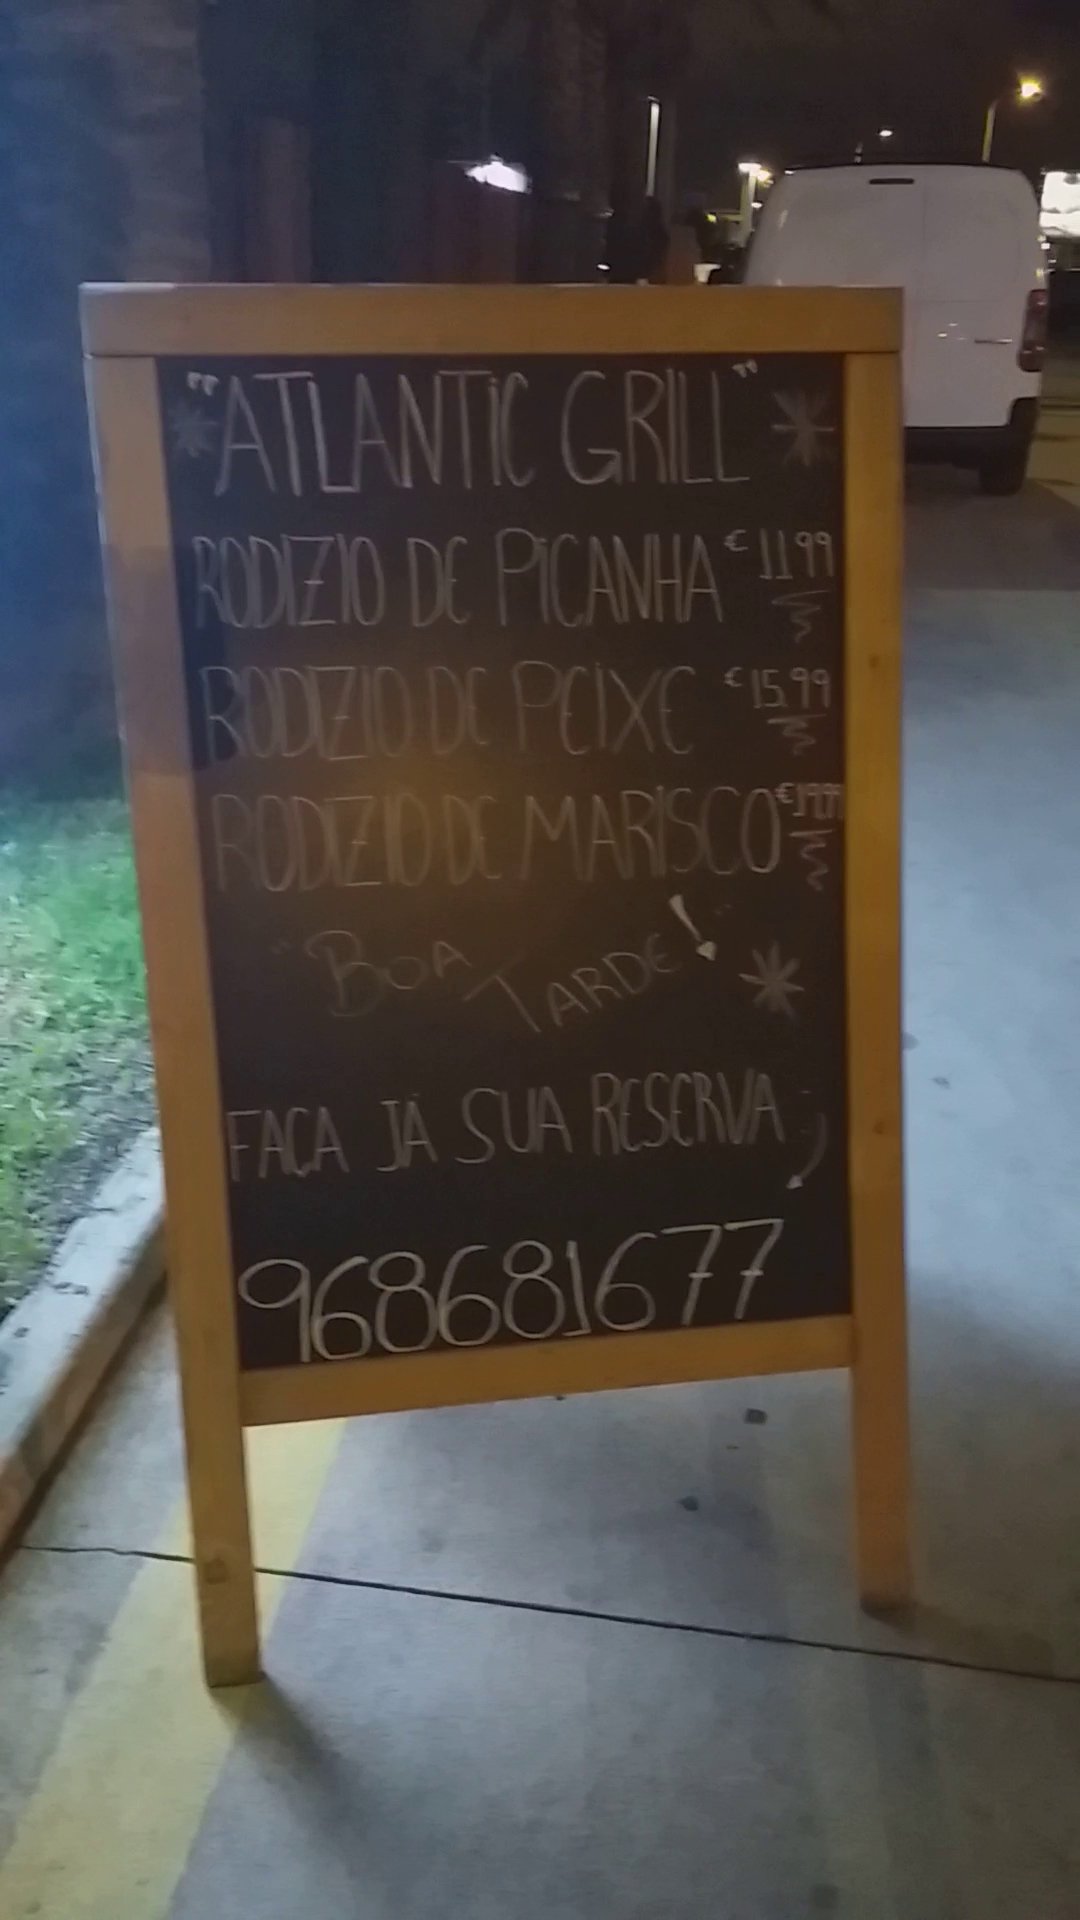 "ATLANTIC GRILL"
RODIZIO DE PICANHA €1199
RODIZIO DE PEIXE €15,99
RODIZIO DE MARISCO €19,99
"BOA TARDE!"
FAÇA JÁ SUA RESERVA
968681677